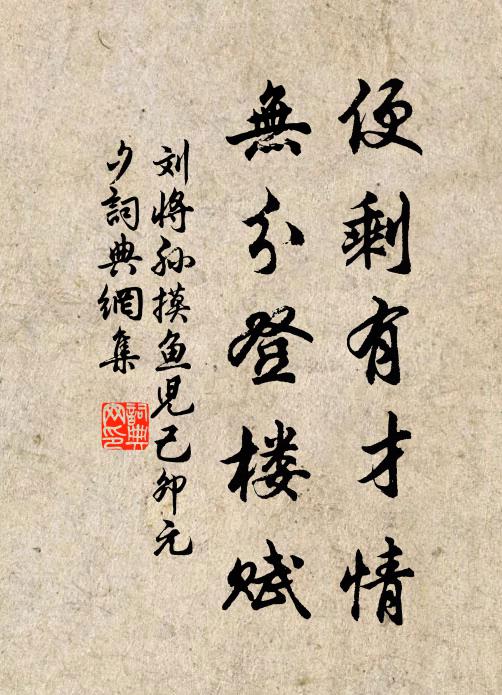 便剩有才情
無分登楼赋
刘将孙摸鱼児己卯元
夕詞典網集
詞典
网印